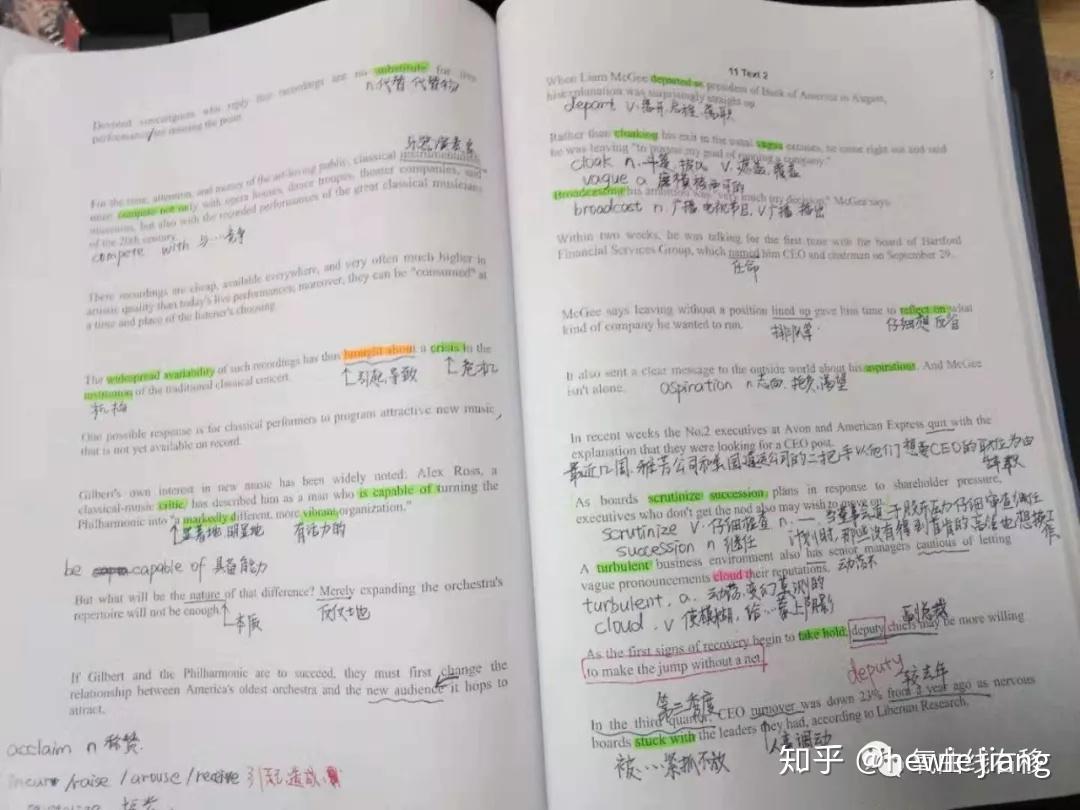 Devoted concertgoers who reply that recordings are no substitute for live
n.代替 代替物
performance are missing the point.
For the time, attention, and money of the art-loving public, classical instrumentalists
must compete not only with opera houses, dance troupes, theater companies, and
museums, but also with the recorded performances of the great classical musicians
of the 20th century.
compete with 与…竞争
There recordings are cheap, available everywhere, and very often much higher in
artistic quality than today's live performances; moreover, they can be "consumed" at
a time and place of the listener's choosing.
The widespread availability of such recordings has thus brought about a crisis in the
institution of the traditional classical concert.
机构
引起,导致
危机
One possible response is for classical performers to program attractive new music,
that is not yet available on record.
Gilbert's own interest in new music has been widely noted: Alex Ross, a
classical-music critic, has described him as a man who is capable of turning the
Philharmonic into "a markedly different, more vibrant organization."
显著地 明显地
有活力的
be capable of 具备能力
But what will be the nature of that difference? Merely expanding the orchestra's
repertoire will not be enough.
本质
仅仅地
If Gilbert and the Philharmonic are to succeed, they must first change the
relationship between America's oldest orchestra and the new audience it hopes to
attract.
acclaim n 称赞
incur /raise /arouse /receive 引起 造成
11 Text 2
When Liam McGee departed as president of Bank of America in August,
his explanation was surprisingly straight up.
depart v.离开,启程,离职
Rather than cloaking his exit in the usual vague excuses, he came right out and said
he was leaving "to pursue my goal of running a company."
cloak n.斗篷,披风 v.遮盖,覆盖
vague a.
Broadcasting his ambition was "very much my decision," McGee says.
broadcast n.广播 电视节目, v广播 播出
Within two weeks, he was talking for the first time with the board of Hartford
Financial Services Group, which named him CEO and chairman on September 29.
任命
McGee says leaving without a position lined up gave him time to reflect on what
kind of company he wanted to run.
排队等
仔细想 反省
It also sent a clear message to the outside world about his aspirations. And McGee
isn't alone.
aspiration n 志向,抱负,渴望
In recent weeks the No.2 executives at Avon and American Express quit with the
explanation that they were looking for a CEO post.
最近几周,雅芳公司和美国运通公司的二把手以他们想要CEO的职位为由
辞职
As boards scrutinize succession plans in response to shareholder pressure,
executives who don't get the nod also may wish to move on.
scrutinize v.仔细检查
succession n 继任
A turbulent business environment also has senior managers cautious of letting
vague pronouncements cloud their reputations.
turbulent, a.
cloud. v 使模糊,给…蒙上阴影
As the first signs of recovery begin to take hold, deputy chiefs may be more willing
to make the jump without a net.
副总裁
deputy
较去年
第三季度
In the third quarter, CEO turnover was down 23% from a year ago as nervous
boards stuck with the leaders they had, according to Liberum Research.
人事调动
被…紧抓不放
知乎 @newiejiang